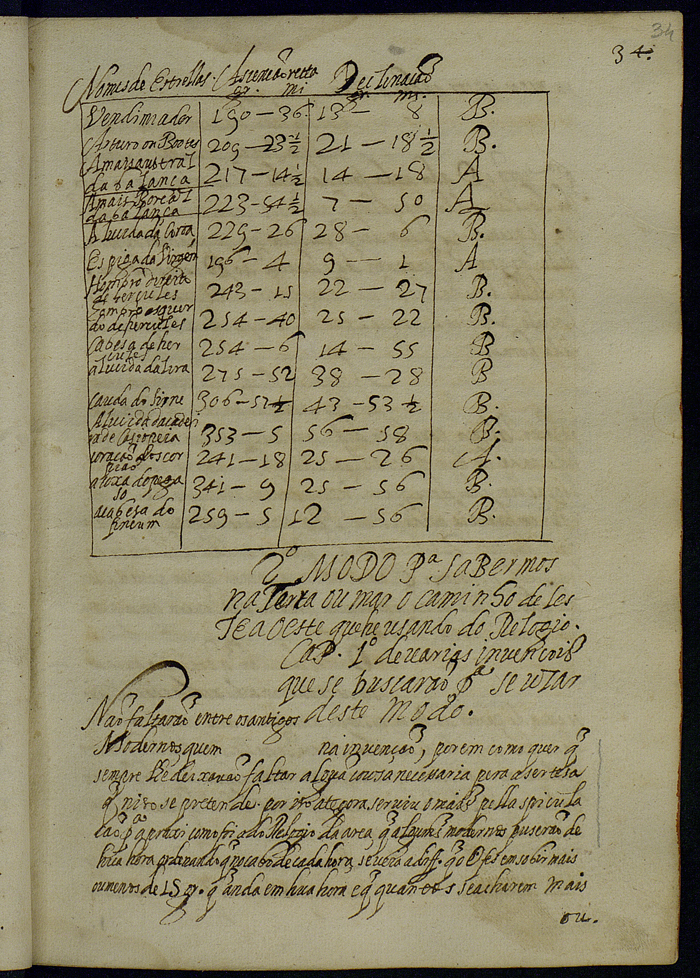 34
34.
Nomes de Estrellas. Ascencaõ recta Declinacaõ
gr. mi. gr. mi.
Vendimiador 190 — 36 13 — 8 B.
Arturo ou Bootes 209 — 23 1/2 21 — 18 1/2 B.
A mais austral
da balança 217 — 14 1/2 14 — 18 A
A mais Boreal
da balança 223 — 54 1/2 7 — 50 A
A lucida da Coroa 229 — 26 28 — 6 B.
Espiga da Virgem 196 — 4 9 — 1 A
Hombro direito
de hercules 243 — 15 22 — 27 B.
hombro esquer
do de hercules 254 — 40 25 — 22 B.
Cabesa de her
cules 254 — 6 14 — 55 B
a lucida da lira 275 — 52 38 — 28 B
cauda do sirne 306 — 57 1/2 43 — 53 1/2 B.
A lucida da cadei
ra de Casiopeia 353 — 5 56 — 58 B.
coraçaõ do scor
piaõ 241 — 18 25 — 26 A.
a coxa do pega
so 341 — 9 25 — 56 B.
a cabesa do
259 — 5 12 — 56 B.
2º MODO Pª saBermos
na Terra ou mar o caminho de Les
Te a Oeste que he usando do Relogio.
CaP. 1º de varias invençois
que se buscaraõ pª se uzar
deste modo.
Naõ faltaraõ entre os antigos
Modernos quem na invencaõ, porem como quer q̃
sempre lhe deixaraõ faltar algũa couza necessaria pera a serteza
q̃ nisso se pretende. por isso ategora serviu o mais pella specula
caõ, pª q̃ como foi a do Relogio da area, q̃ alguns modernos puseraõ de
hũa hora ordenando q̃ no cabo de cada hora, se veria a diff.ª q̃ o fes em sobir mais
ou menos de 15 gr. q̃ anda em hũa hora e q̃ quantos se acharem mais
ou.